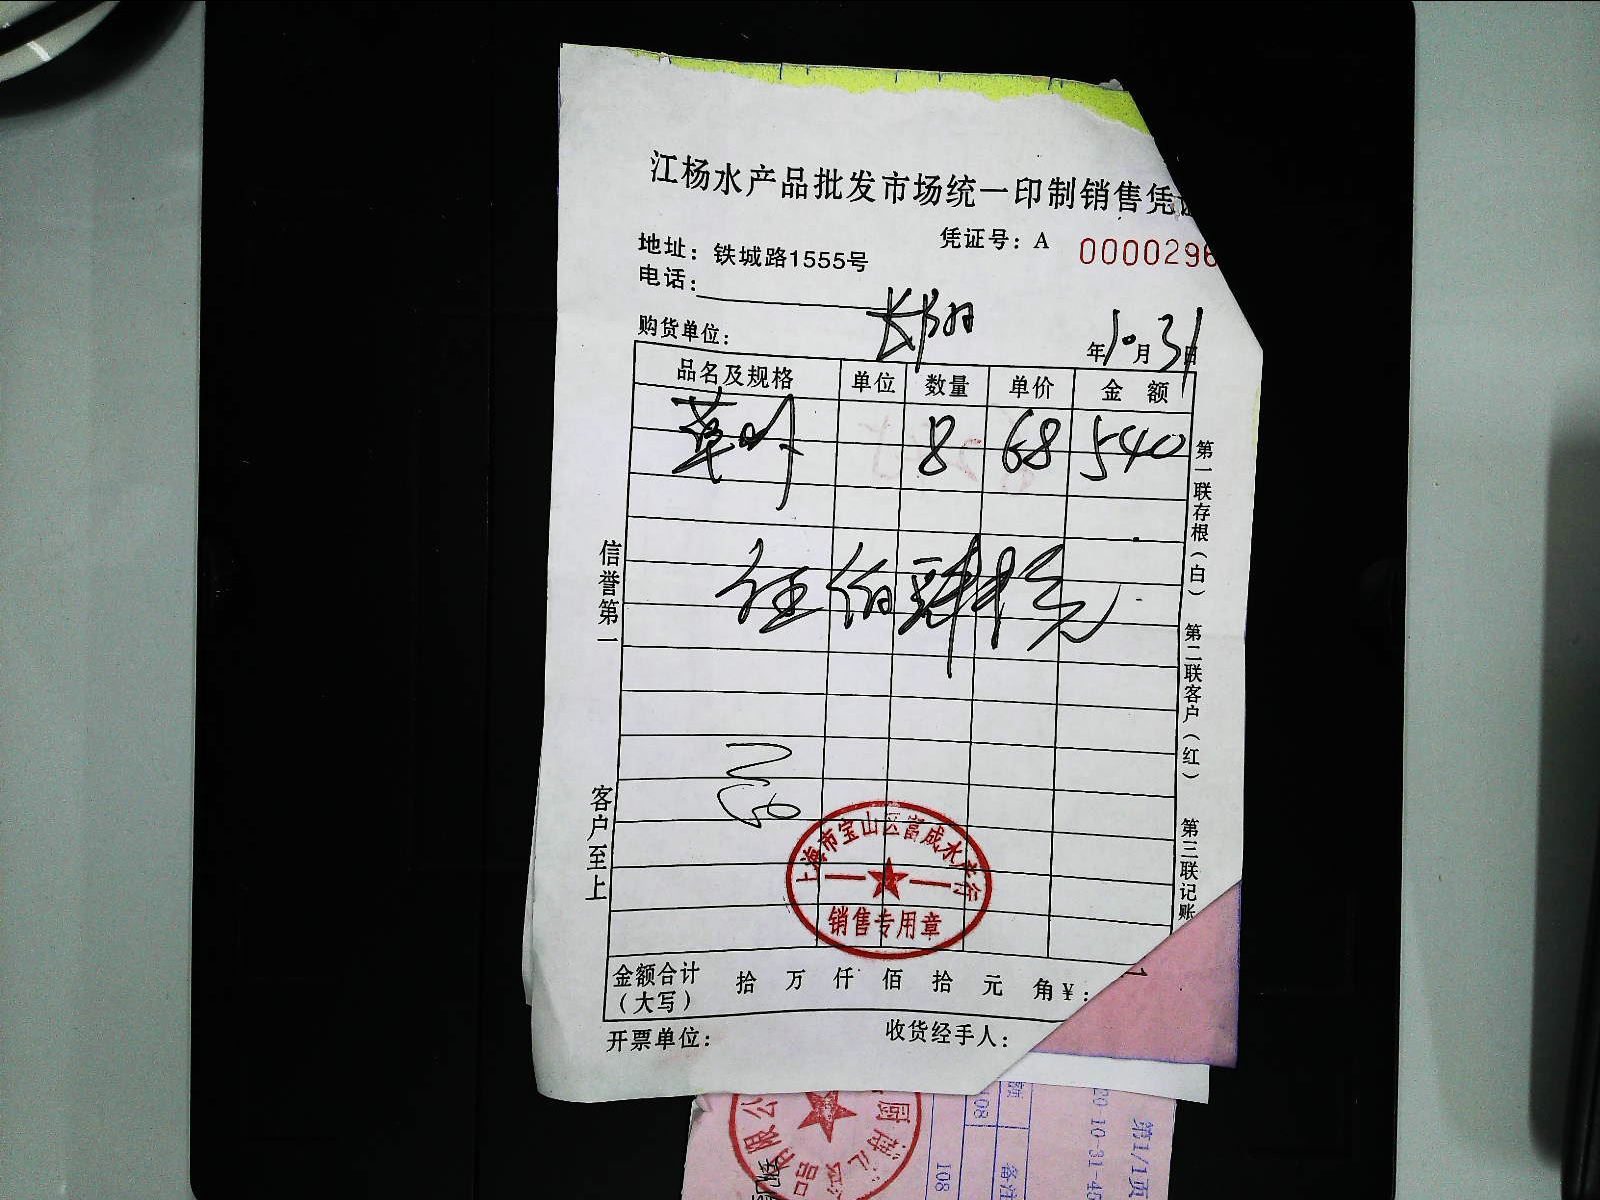 江杨水产品批发市场统一印制销售凭证
凭证号：A 0000296
地址：铁城路1555号
电话：
购货单位：
年10月31日
品名及规格 单位 数量 单价 金额
8 68 540
伍佰肆拾元
信誉第一
客户至上
第一联存根（白） 第二联客户（红） 第三联记账
上海市宝山区富成水产行
销售专用章
金额合计（大写） 拾 万 仟 佰 拾 元 角 ¥：
开票单位： 收货经手人：
有限公
108
108
备注
20 10-31-45
第1/1页